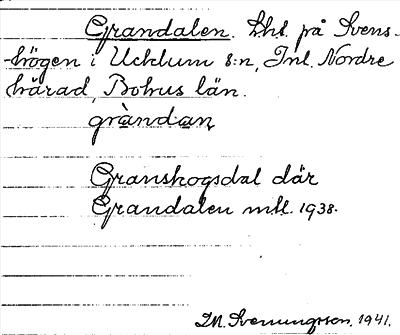 Grandalen. Lhs. på Svens-
-högen i Ucklum s:n, Inl. Nordre
härad, Bohus län.
gràndan
Granskogsdal där
Grandalen mtl. 1938.
Hj. Svenungsson. 1941.